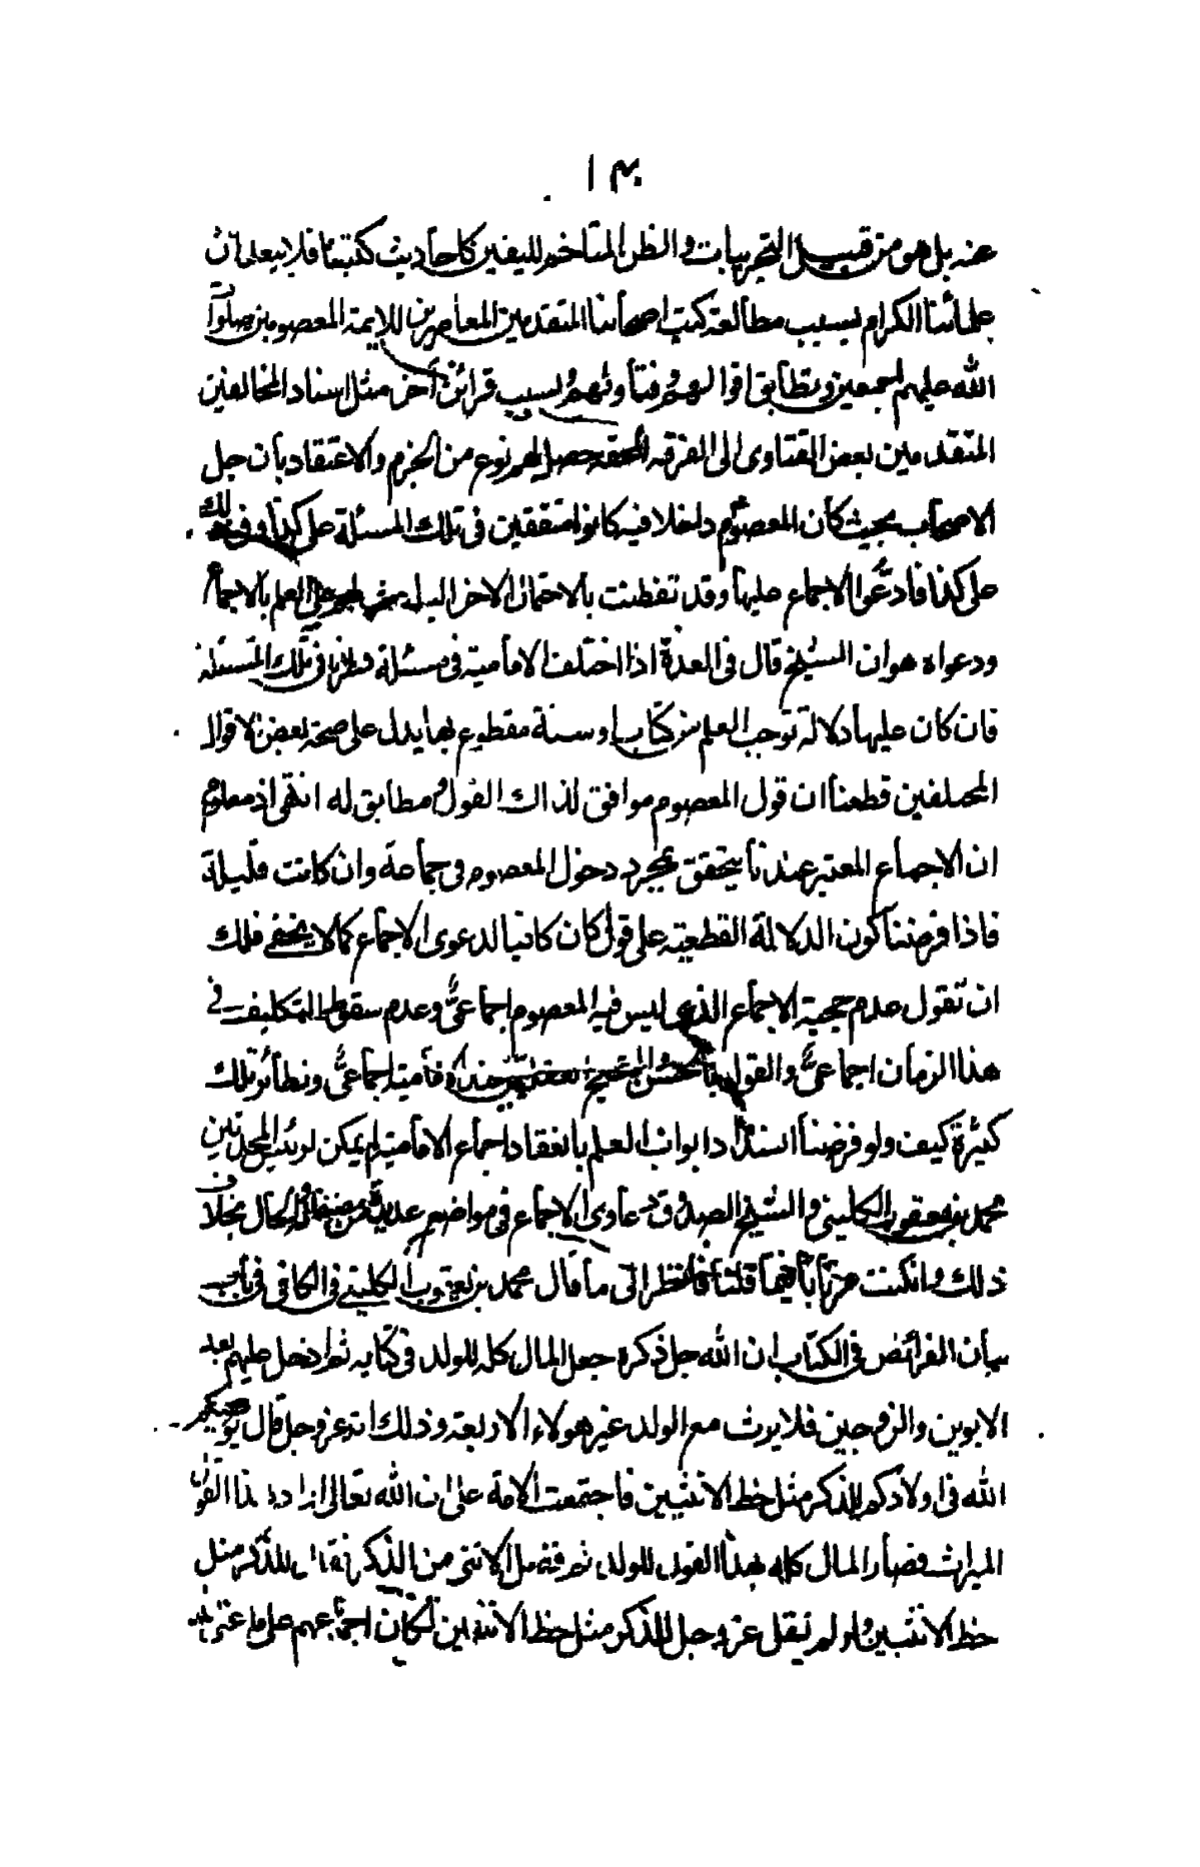 ١٣٠
عنه بل هو من قبيل التجربيات والظن المتاخم لليقين كاحاديث كتبنا فلا يبعد ان
علمائنا الكرام بسبب مطالعة كتب اصحابنا المتقدمين المعاصرين للايمة المعصومين صلوات
الله عليهم اجمعين وتطابق اقوالهم وفتاويهم وبسبب قرائن أخر مثل اسناد المخالفين
المتقدمين بعض الفتاوى الى الفرقة المحقة حصل لهم نوع من الجزم والاعتقاد بان جل
الاصحاب بحيث كان المعصوم داخلا فيه كانوا متفقين فى تلك المسئلة على كذا وفى تلك
على كذا فادعوا الاجماع عليها وقد تفطنت بالاحتمال الاخر العلم بالاجماع
ودعواه هو ان الشيخ قال فى العدة اذا اختلف الامامية فى مسئلة نظرنا فى تلك المسئلة
فان كان عليها دلالة توجب العلم من كتاب او سنة مقطوع بها يدل على صحة بعض الاقوال
المختلفين قطعنا ان قول المعصوم موافق لذاك القول ومطابق له انتهى اذ معلوم
ان الاجماع المعتبر عندنا يتحقق بمجرد دخول المعصوم فى جماعة وان كانت قليلة
فاذا فرضنا كون الدلالة القطعية على قول كان كافيا لدعوى الاجماع كما لا يخفى فلك
ان تقول عدم حجية الاجماع الذى ليس فيه المعصوم اجماعىٌّ وعدم سقوط التكليف فى
هذا الزمان اجماعىٌّ والقول اجماعىٌّ ونظائر تلك
كثيرة كيف ولو فرضنا انسداد ابواب العلم بانعقاد اجماع الامامية لم يمكن لرئيس المحدثين
محمد بن يعقوب الكلينى والشيخ الصدوق دعاوى الاجماع فى مواضع عديدة من مصنفاتهم والحال بخلاف
ذلك وانكنت مرتابا فيما قلنا فانظر الى ما قال محمد بن يعقوب الكلينى فى الكافى فى باب
بيان الفرائض فى الكتاب ان الله جل ذكره جعل المال كله للولد فى كتابه ثم ادخل عليهم بعد
الابوين والزوجين فلا يرث مع الولد غير هولاء الاربعة وذلك انه عز وجل قال يوصيكم
الله فى اولادكم للذكر مثل حظ الانثيين فاجتمعت الامة على ان الله تعالى اراد بهذا القول
الميراث فصار المال كله بهذا القول للولد ثم فصل الانثى من الذكر فقال للذكر مثل
حظ الانثيين ولو لم يقل عز وجل للذكر مثل حظ الانثيين لكان اجماعهم على ما عنى الله